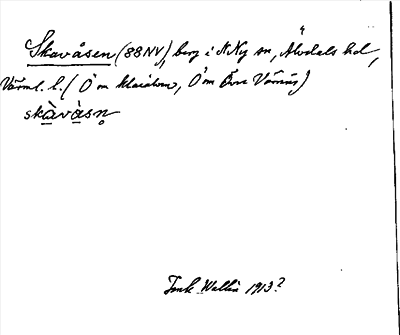 Skavåsen (88NV), berg i N. Ny sn, Älvdals hd,
Värml. l. (Ö m Klarälven, Ö m Övre Värnäs)
skàvàsn̥
1913?